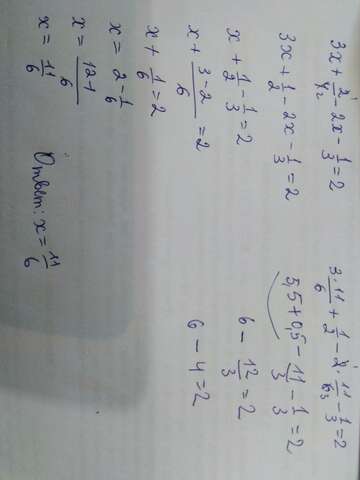 3x + 2/4₂ - 2x - 1/3 = 2
3x + 1/2 - 2x - 1/3 = 2
x + 1/2 - 1/3 = 2
x + (3-2)/6 = 2
x + 1/6 = 2
x = 2 - 1/6
x = (12-1)/6
x = 11/6
Ответ: x = 11/6
3 · 11/6 + 1/2 - 2 · 11/6₃ - 1/3 = 2
5,5 + 0,5 - 11/3 - 1/3 = 2
6 - 12/3 = 2
6 - 4 = 2